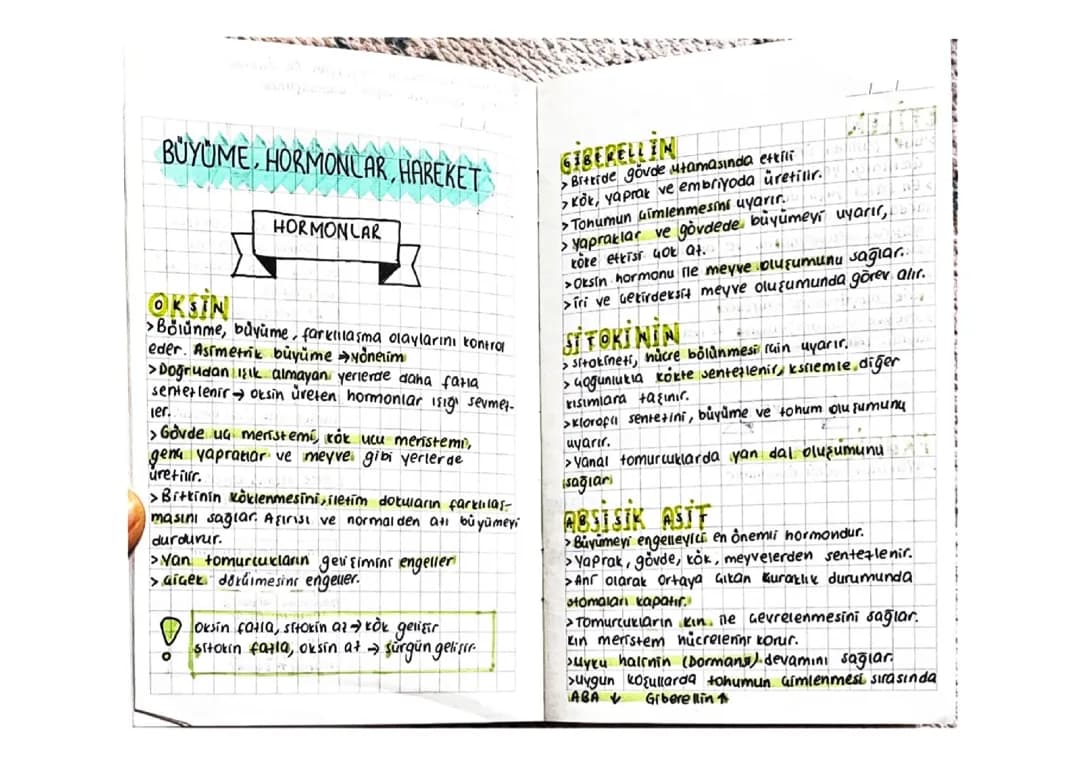 BÜYÜME, HORMONLAR, HAREKET
HORMONLAR
OKSİN
> Bölünme, büyüme, farklılaşma olaylarını kontrol
eder. Asimetrik büyüme → yönelim
> Doğrudan ışık almayan yerlerde daha fazla
sentezlenir → oksin üreten hormonlar ışığı sevmez-
ler.
> Gövde uç meristemi, kök ucu meristemi,
genç yapraklar ve meyve gibi yerlerde
üretilir.
> Bitkinin köklenmesini, iletim dokuların farklılaş-
masını sağlar. Aşırısı ve normalden azı büyümeyi
durdurur.
> Yan tomurcukların gelişimini engeller
> Çiçek dökülmesini engeller.
! Oksin fazla, sitokin az → kök gelişir
sitokin fazla, oksin az → sürgün gelişir.
GİBERELLİN
> Bitkide gövde uzamasında etkili
> Kök, yaprak ve embriyoda üretilir.
> Tohumun çimlenmesini uyarır.
> Yapraklar ve gövdede büyümeyi uyarır,
köke etkisi çok az.
> Oksin hormonu ile meyve oluşumunu sağlar.
> İri ve çekirdeksiz meyve oluşumunda görev alır.
SİTOKİNİN
> Sitokinezi, hücre bölünmesi için uyarır.
> Çoğunlukla kökte sentezlenir, ksilemle diğer
kısımlara taşınır.
> Klorofil sentezini, büyüme ve tohum oluşumunu
uyarır.
> Yanal tomurcuklarda yan dal oluşumunu
sağlar
ABSİSİK ASİT
> Büyümeyi engelleyici en önemli hormondur.
> Yaprak, gövde, kök, meyvelerden sentezlenir.
> Ani olarak ortaya çıkan kuraklık durumunda
stomaları kapatır.
> Tomurcukların kın ile çevrelenmesini sağlar.
Kın meristem hücrelerini korur.
> Uyku halinin (Dormansi) devamını sağlar.
> Uygun koşullarda tohumun çimlenmesi sırasında
ABA ↓ Giberellin ↑